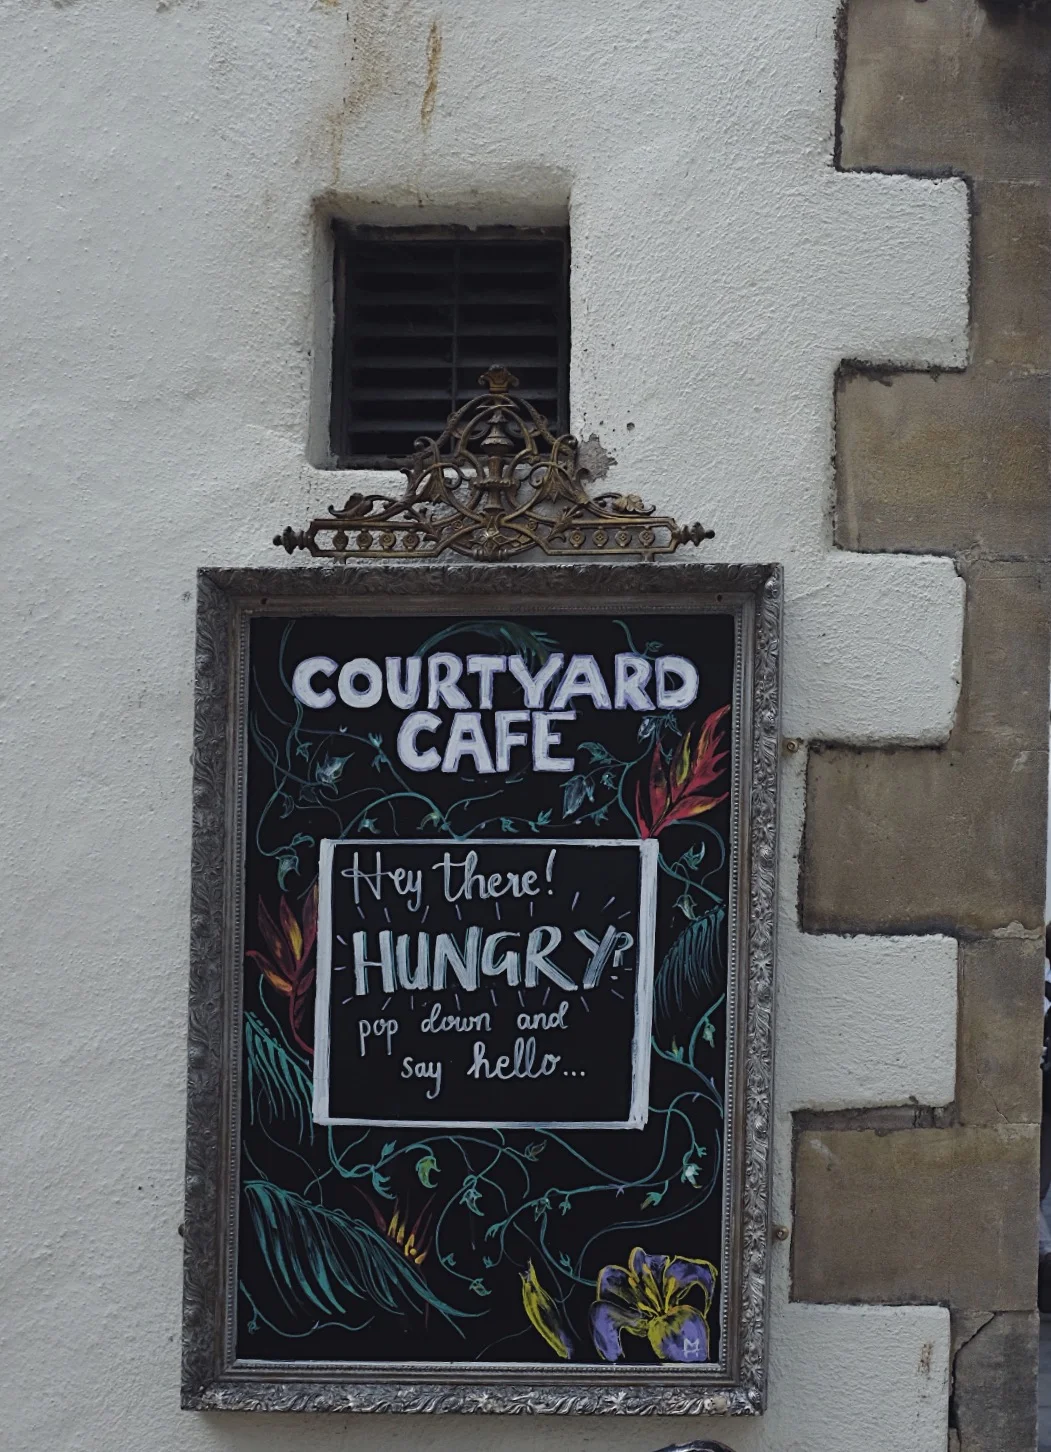 COURTYARD
CAFE
Hey there!
HUNGRY?
pop down and
say hello...
M